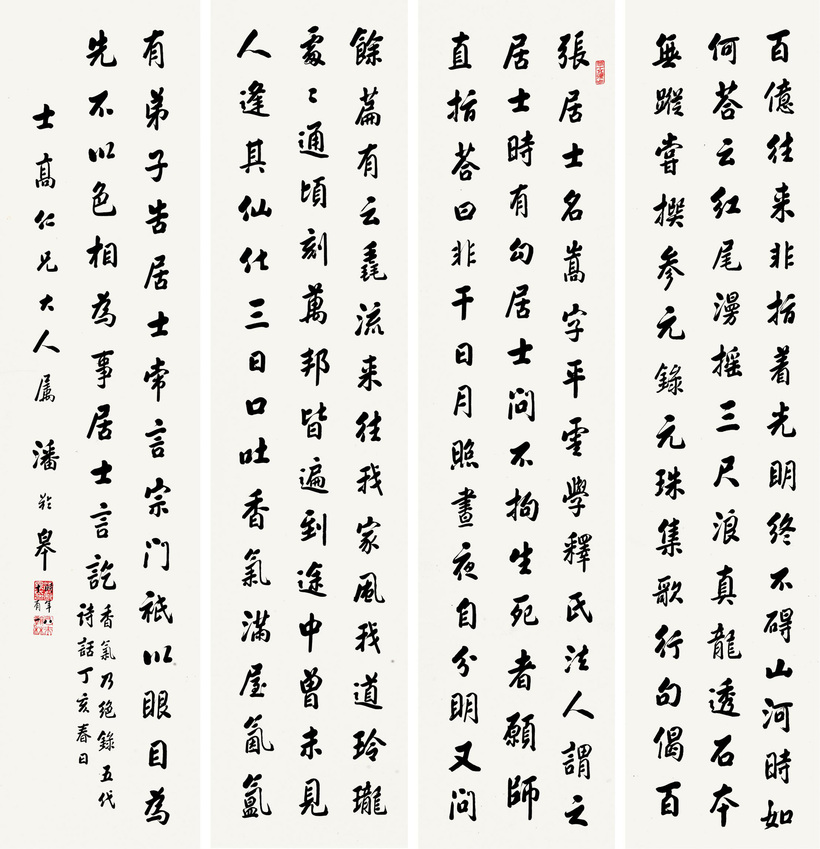 張居士名嵩字平雲學釋氏法人謂之
居士時有勾居士問不拘生死者願師
直指答曰非干日月照晝夜自分明又問
百億往来非指着光明終不碍山河時如
何答云紅尾漫摇三尺浪真龍透石本
無蹤嘗撰參元錄元珠集歌行句偈百
餘篇有云毳流来往我家風我道玲瓏
處〻通頃刻萬邦皆遍到途中曾未見
人逢其仙仕三日口吐香氣滿屋氤氳
有弟子告居士常言宗门祇以眼目為
先不以色相為事居士言訖
香氣乃絕錄五代
詩話丁亥春日
士高仁兄大人属 潘齡皋